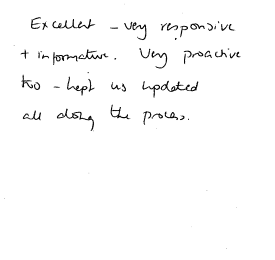 Excellent - very responsive
+ informative. Very proactive
too - kept us updated
all along the process.